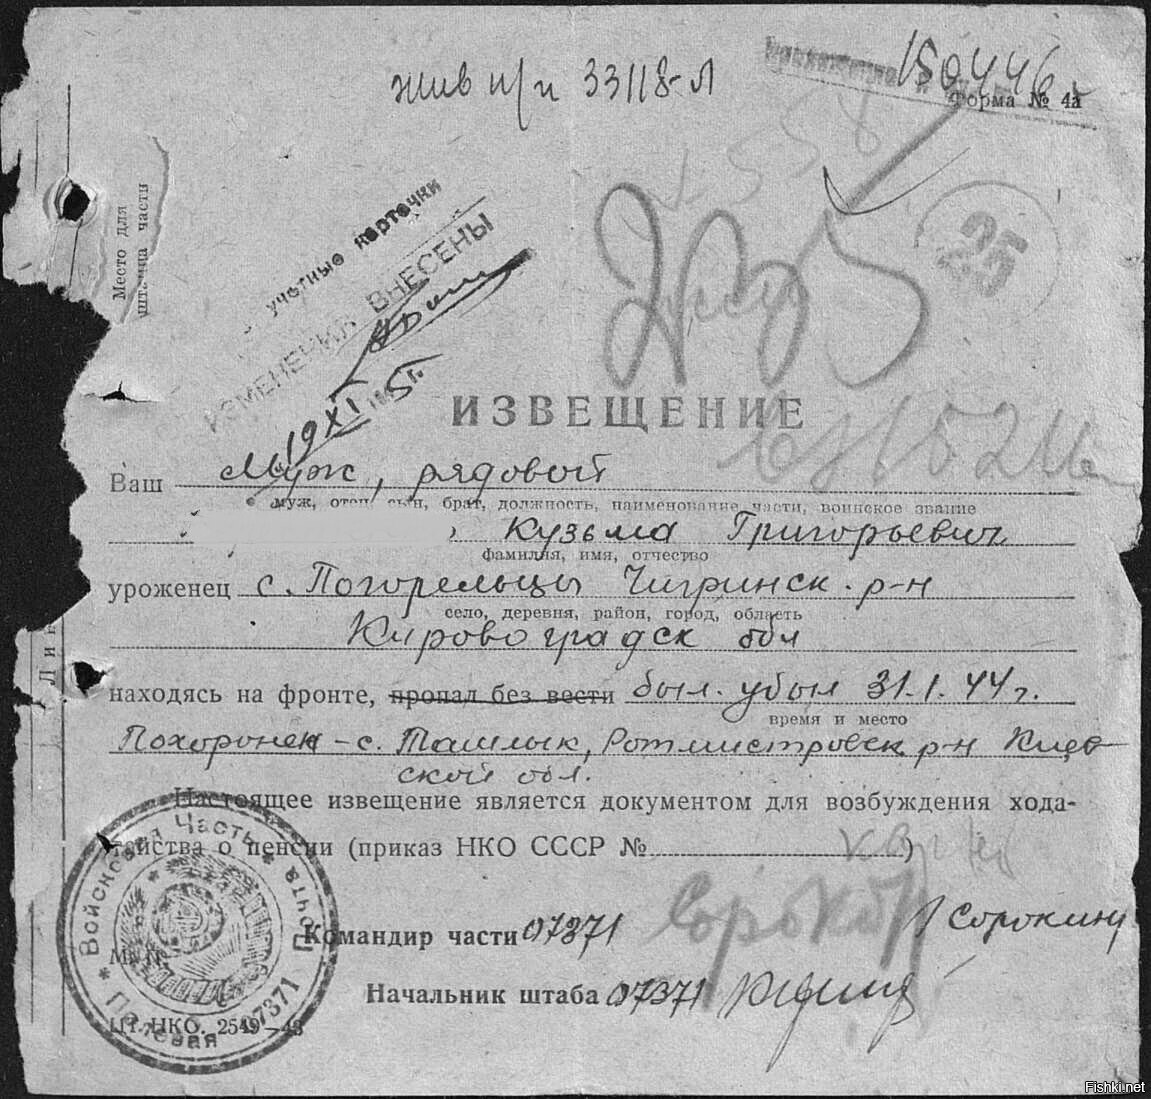 жив 33118-Л
150446
Форма № 4а
Место для
штампа части
учетные карточки
ИЗМЕНЕНИЯ ВНЕСЕНЫ
19 XI 5 г.
25
ИЗВЕЩЕНИЕ
Ваш муж, рядовой
муж, отец, сын, брат, должность, наименование части, воинское звание
, Кузьма Григорьевич
фамилия, имя, отчество
уроженец с. Погорельцы Чигринск. р-н
село, деревня, район, город, область
Кировоградск обл
находясь на фронте, пропал без вести был. убыл 31.1.44 г.
время и место
Похоронен – с. Ташлык, Ротмистровск р-н Киев
ской обл.
Настоящее извещение является документом для возбуждения хода-
тайства о пенсии (приказ НКО СССР № )
Войсковая Часть * Полевая Почта * 07371
М. П.
Командир части 07371 Сорокин
Начальник штаба 07371
ЦТ. НКО. 2549—43
Fishki.net